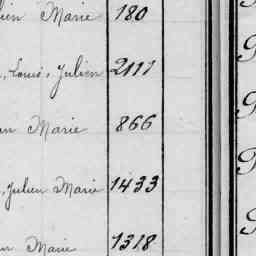 Marie 180
Louis, Julien 2111
Marie 866
Julien Marie 1433
Marie 1318